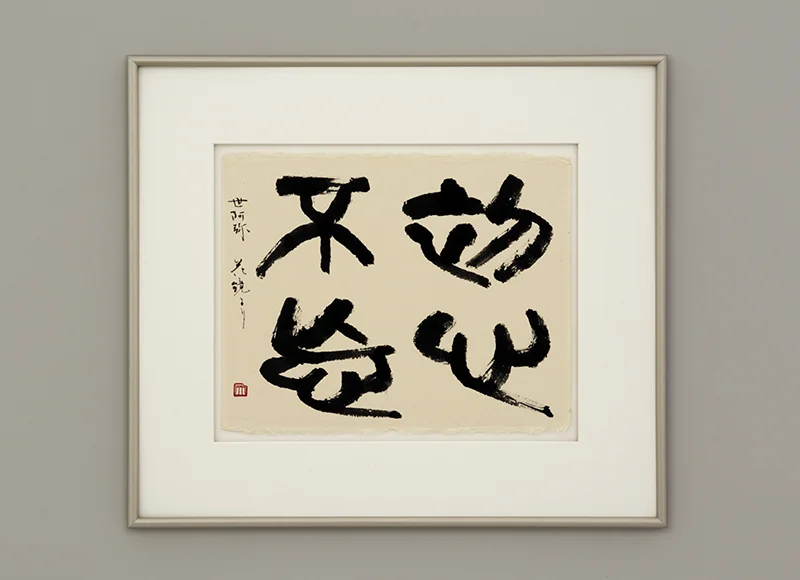 初心
不忘
世阿弥 花鏡より